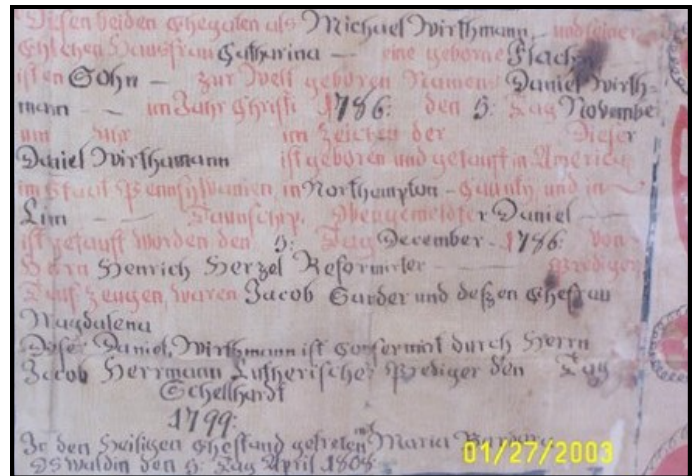 Disen beiden Ehegaten als Michael Wirthmann, und seiner
Ehlichen Hausfrau Catharina — eine geborne Flach
ist en Sohn — zur Welt geboren Namens Daniel Wirth=
mann — — im Jahr Christi 1786: den 5: Tag Novembe
um Uhr im Zeichen der Dieser
Daniel Wirthamann ist geboren und getauft in America
im Staat Pennsylvanien, in Northempton - Caunty und in
Lim — — Taunschip. Obengemeldter Daniel —
ist getauft worden den 5: Tag December - 1786: von
Herrn Henrich Herzel Reformirter — Prediger
Tauf zeugen, waren Jacob Sarder und deßen Ehefrau
Magdalena
Diser Daniel, Wirthmann ist Confermirt durch Herrn
Jacob Herrmann Lutherischer Prediger den Tag
Schellhardt
1799:
In den Heiligen Ehestand getreten mit Maria Barbara
OSwaldin den 5: Tag April 1808:
01/27/2003